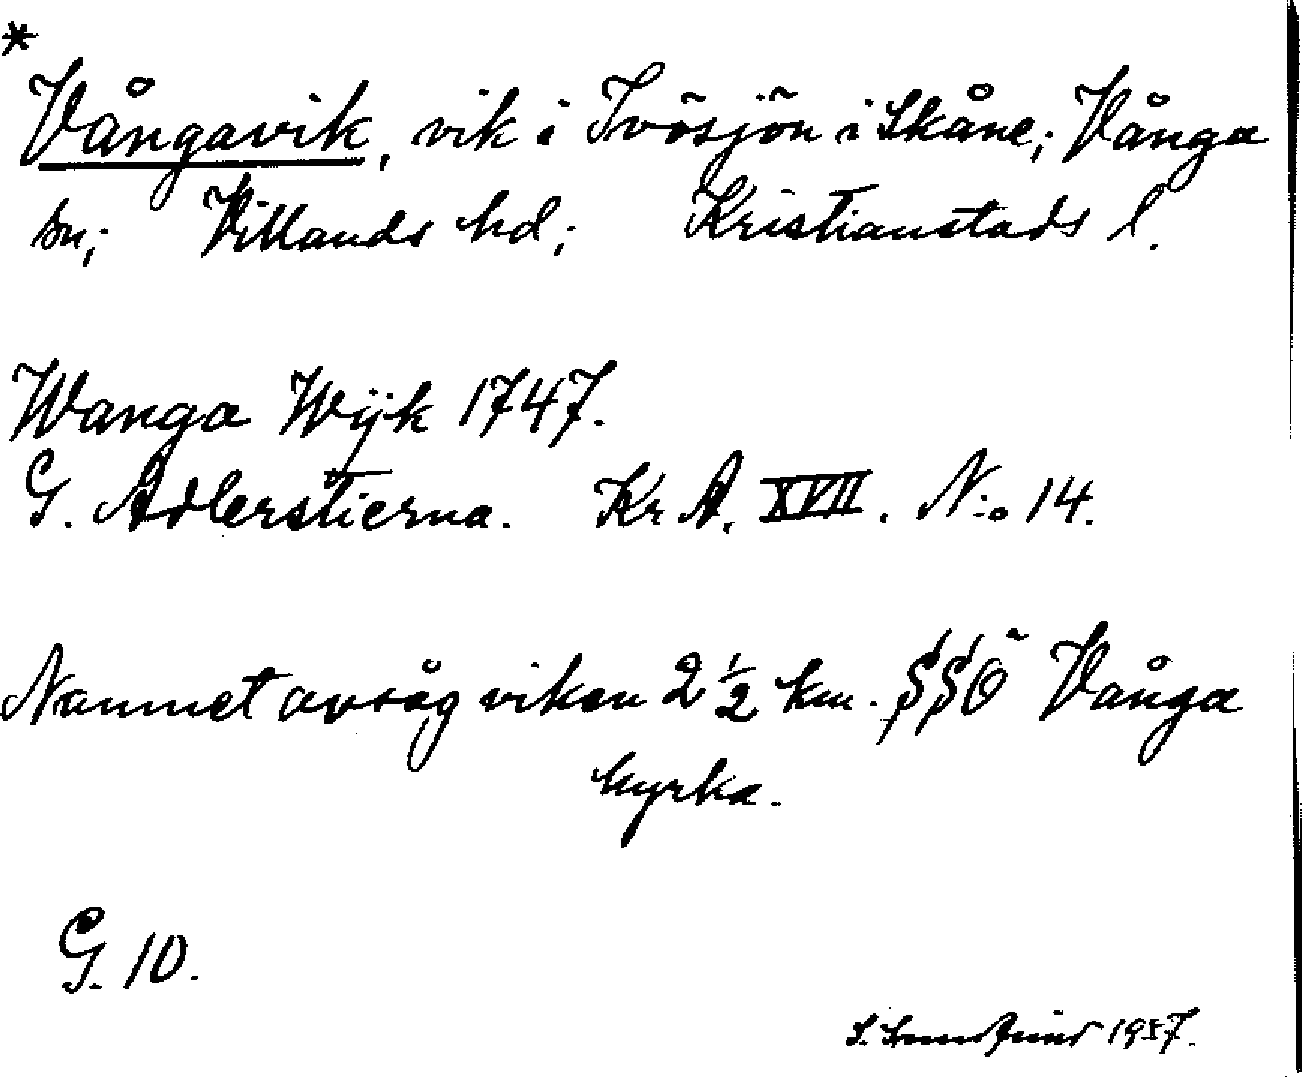 *
Vångavik, vik i Ivösjön i Skåne; Vånga
sn; Villands hd; Kristianstads l.
Wanga Wijk 1747.
G. Adlerstierna. Kr A. XVII. N:o 14.
Namnet avsåg viken 2 1/2 km. SSÖ Vånga
kyrka.
G. 10.
S. 1957.